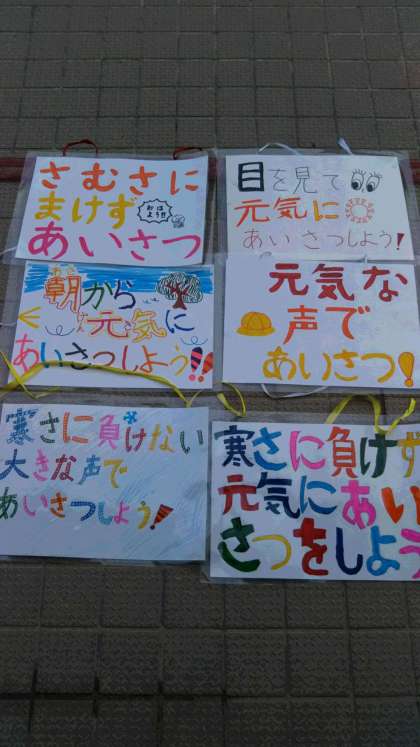 さむさに
まけず
おは
よう!!
あいさつ
目を見て
元気に
あいさつしよう!
朝から
元気に
あいさつしよう!!
元気な
声で
あいさつ!
寒さに負けない
大きな声で
あいさつしよう!
寒さに負けず
元気にあい
さつをしよう